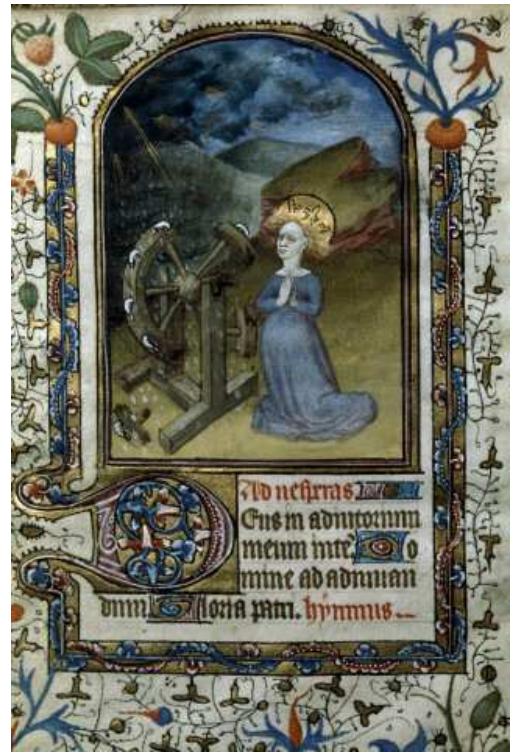 Ad vesperas
Deus in adiutorium
meum inte Do
mine ad adiuuan
dum Gloria patri. hymnus